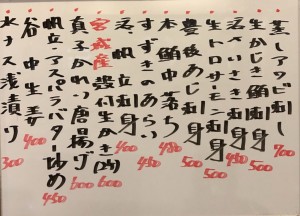 蒸しアワビ 700
生かじき刺身 500
活〆いさき刺身 500
生サーモン刺身 450
豊後あじ刺身 500
本鮪中落ち 480
すずきのあらい 450
活〆帆立刺身 400
宮城産殻付生かき(内) 600
真子かれい唐揚げ 600
帆立アスパラバター炒め 450
谷中生姜 400
水ナス浅漬り 300